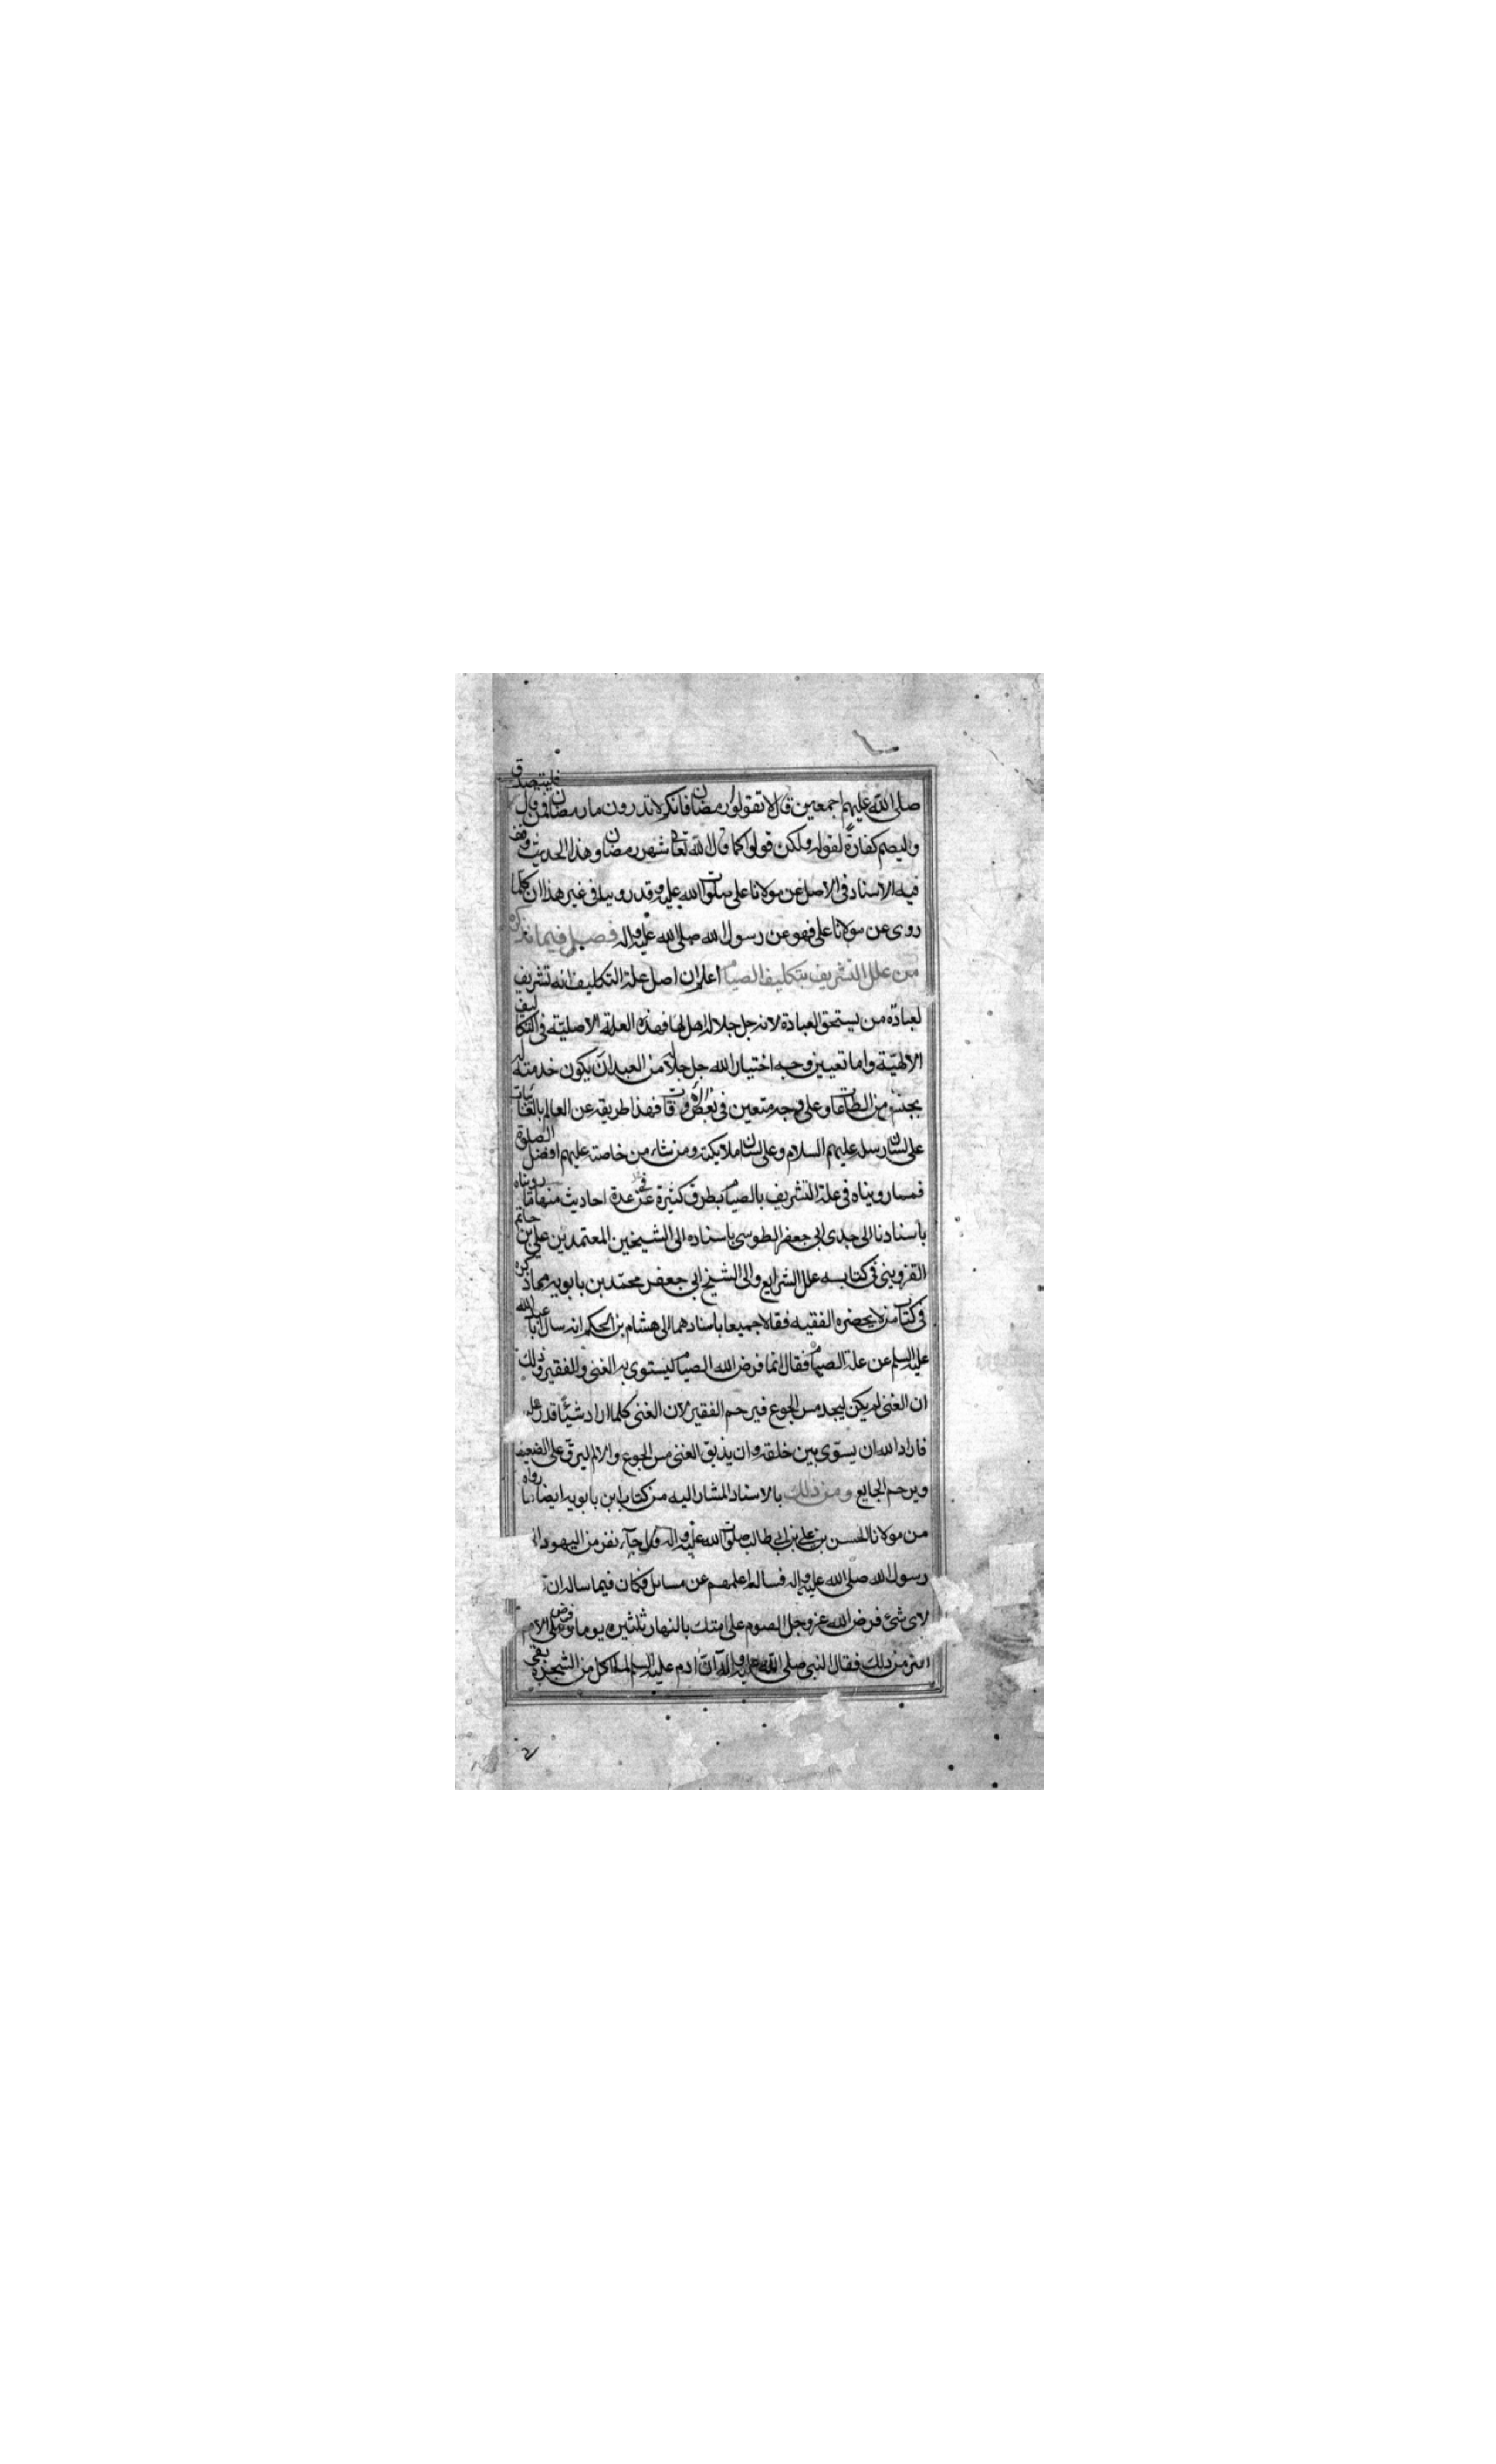 صلى الله عليهم اجمعين قال لا تقولوا رمضان فانكم لا تدرون ما رمضان فمن قال فليتصدق
وليصم كفارة لقوله ولكن قولوا كما قال الله تعا شهر رمضان وهذا الحديث وقف
فيه الاسناد فى الاصل عن مولانا على صلوات الله عليه وقد روينا فى غير هذا ان كلما
روى عن مولانا على فهو عن رسول الله صلى الله عليه واله فصل فيما نذكره
من علل التشريف بتكليف الصيام اعلم ان اصل علة التكليف انه تشريف
لعبادة من يستحق العبادة لانه جل جلاله اهل لها فهذه العلة الاصلية فى التكاليف
الالهية واما تعيين وجه اختيار الله جل جلاله من العبد ان يكون خدمته له
بجنس من الطاعات وعلى وجه متعين فى بعض الاوقات فهذا طريقه عن العالم بالغائبات
على لسان رسله عليهم السلام وعلى لسان ملايكته ومن شاء من خاصته عليهم افضل الصلوة
فمما رويناه فى علة التشريف بالصيام بطرق كثيرة عدة احاديث منها ما رويناه
باسنادنا الى جدى ابى جعفر الطوسى باسناده الى الشيخين المعتمدين على بن حاتم
القزوينى فى كتابه علل الشرايع والى الشيخ ابى جعفر محمد بن بابويه مما ذكره
فى كتاب من لا يحضره الفقيه فقالا جميعا باسنادهما الى هشام بن الحكم انه سال ابا عبد الله
عليه السلم عن علة الصيام فقال انما فرض الله الصيام ليستوى به الغنى والفقير وذلك
ان الغنى لم يكن ليجد مس الجوع فيرحم الفقير لان الغنى كلما اراد شيئا قدر عليه
فاراد الله ان يسوى بين خلقه وان يذيق الغنى مس الجوع والالم ليرق على الضعيف
ويرحم الجايع ومن ذلك بالاسناد المشار اليه من كتاب ابن بابويه ايضا ما رواه
من مولانا الحسن بن على بن ابى طالب صلوات الله عليه واله قال جآء نفر من اليهود
رسول الله صلى الله عليه واله فساله اعلمهم عن مسائل فكان فيما ساله ان
لاى شئ فرض الله عز وجل الصوم على امتك بالنهار ثلثين يوما وفرض على الامم
اكثر من ذلك فقال النبى صلى الله عليه واله ان ادم عليه السلم لما اكل من الشجرة بقى